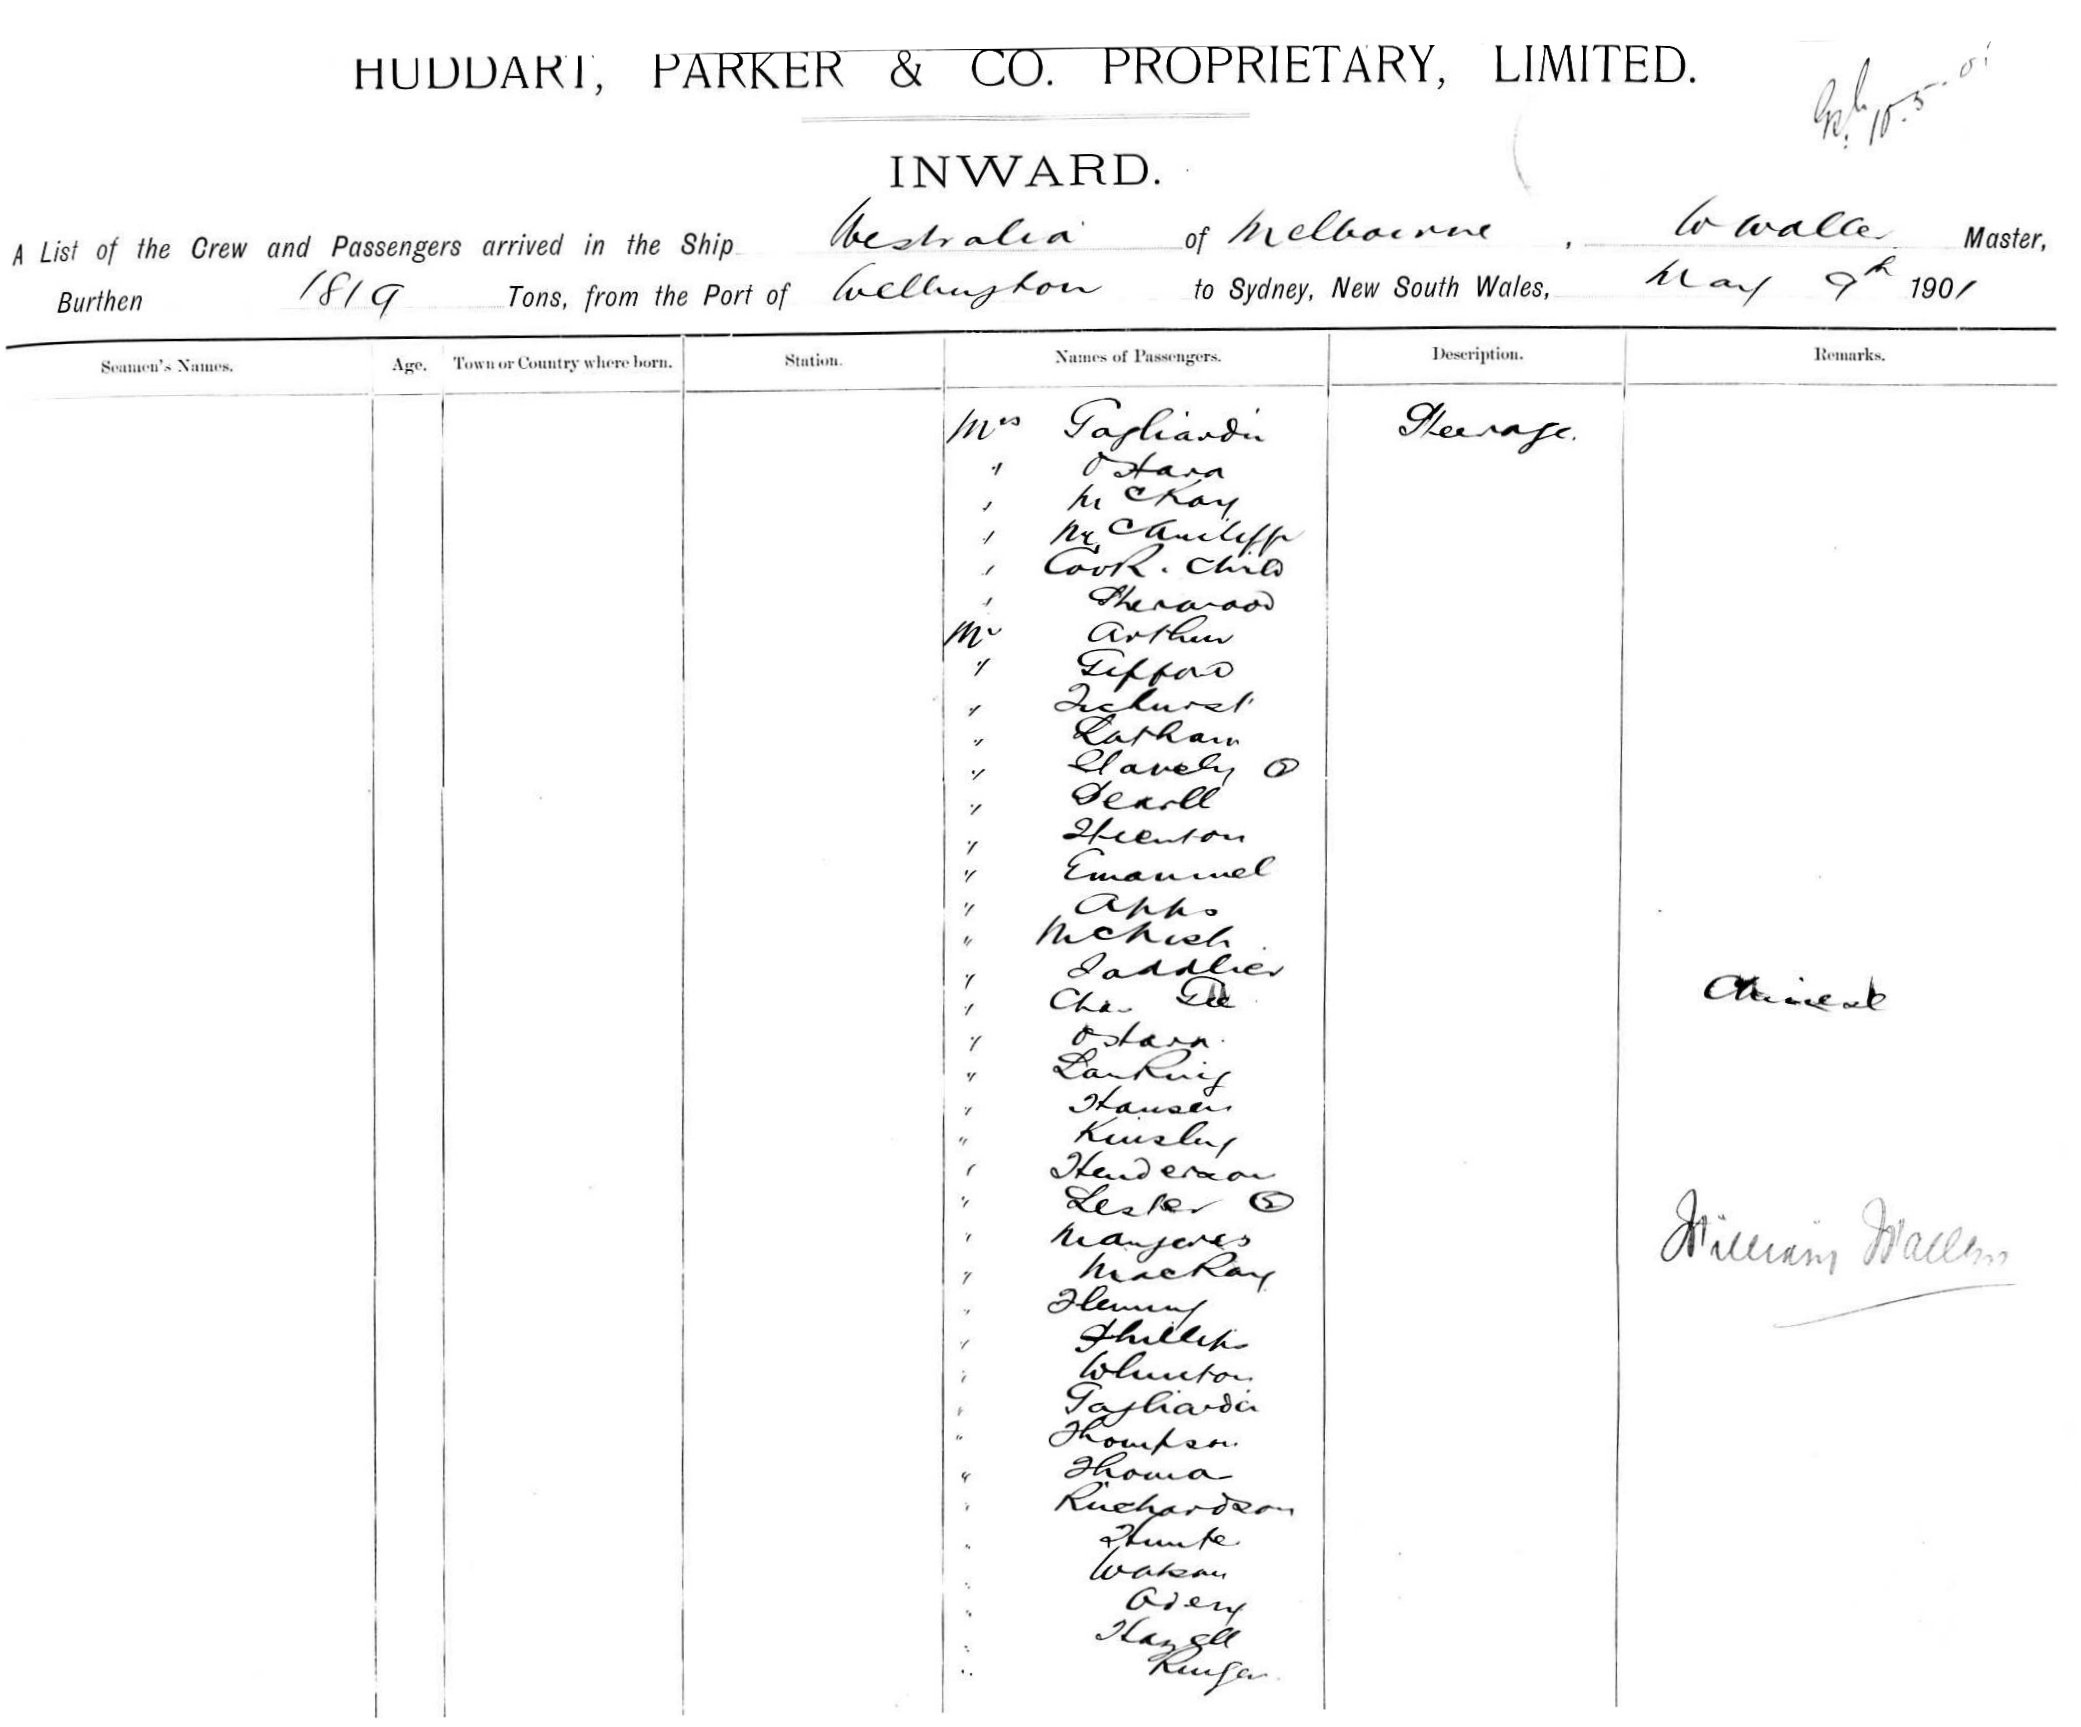 HUDDART, PARKER & CO. PROPRIETARY, LIMITED.
10.5.01
INWARD.
A List of the Crew and Passengers arrived in the Ship Westralia of Melbourne, W Waller Master,
Burthen 1819 Tons, from the Port of Wellington to Sydney, New South Wales, May 9th 1901
Seamen's Names. Age. Town or Country where born. Station. Names of Passengers. Description. Remarks.
Mrs Tagliardi Steerage.
" Ostara
" McKay
" McAuliffe
" Cook. Child
" Sherwood
Mr Arthur
" Gifford
" Ticehurst
" Latham
" Stavely
" Sexill
" Henton
" Emanuel
" Apps
" McNish
" Saddlier
" Chas Gee Chinese
" Ostara
" Lanking
" Hansen
" Kinsley
" Henderson
" Lester (2)
"
" MacKay
" Fleming
" Phillips
" Whinton
" Tagliardi
" Thompson
" Thoma
" Richardson
" Hunte
" Watson
" Adeny
" Hazell
"
William Waller